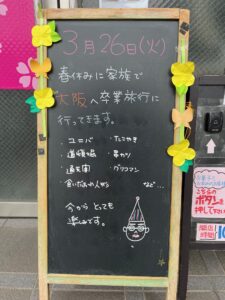 3月26日(火)
春休みに家族で
大阪へ卒業旅行に
行ってきます。
・ユニバ
・道頓堀
・通天閣
・食いだおれ人形
・たこやき
・串カツ
・グリコマン
など…
今から とっても
楽しみです。
こちらの
ボタンを
押して下さい